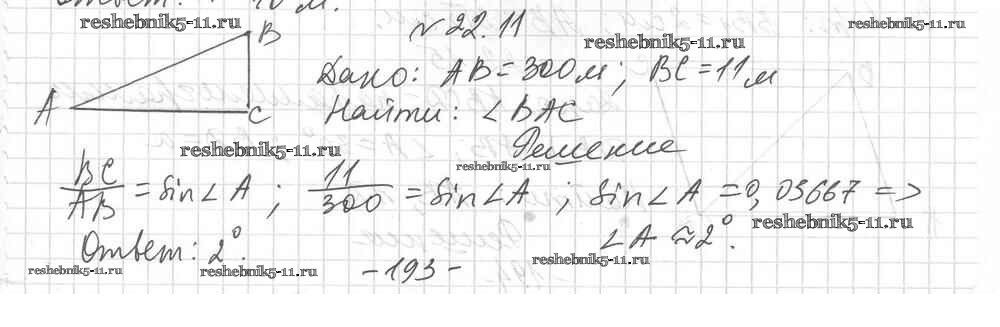 reshebnik5-11.ru
№ 22.11
reshebnik5-11.ru
reshebnik5-11.ru
B
A
C
Дано: AB = 300м; BC = 11м
Найти: ∠BAC
reshebnik5-11.ru
Решение
reshebnik5-11.ru
BC/AB = Sin∠A; 11/300 = Sin∠A; Sin∠A = 0,03667 =>
reshebnik5-11.ru
∠A ≈ 2°.
Ответ: 2°.
reshebnik5-11.ru
reshebnik5-11.ru
-193-
reshebnik5-11.ru